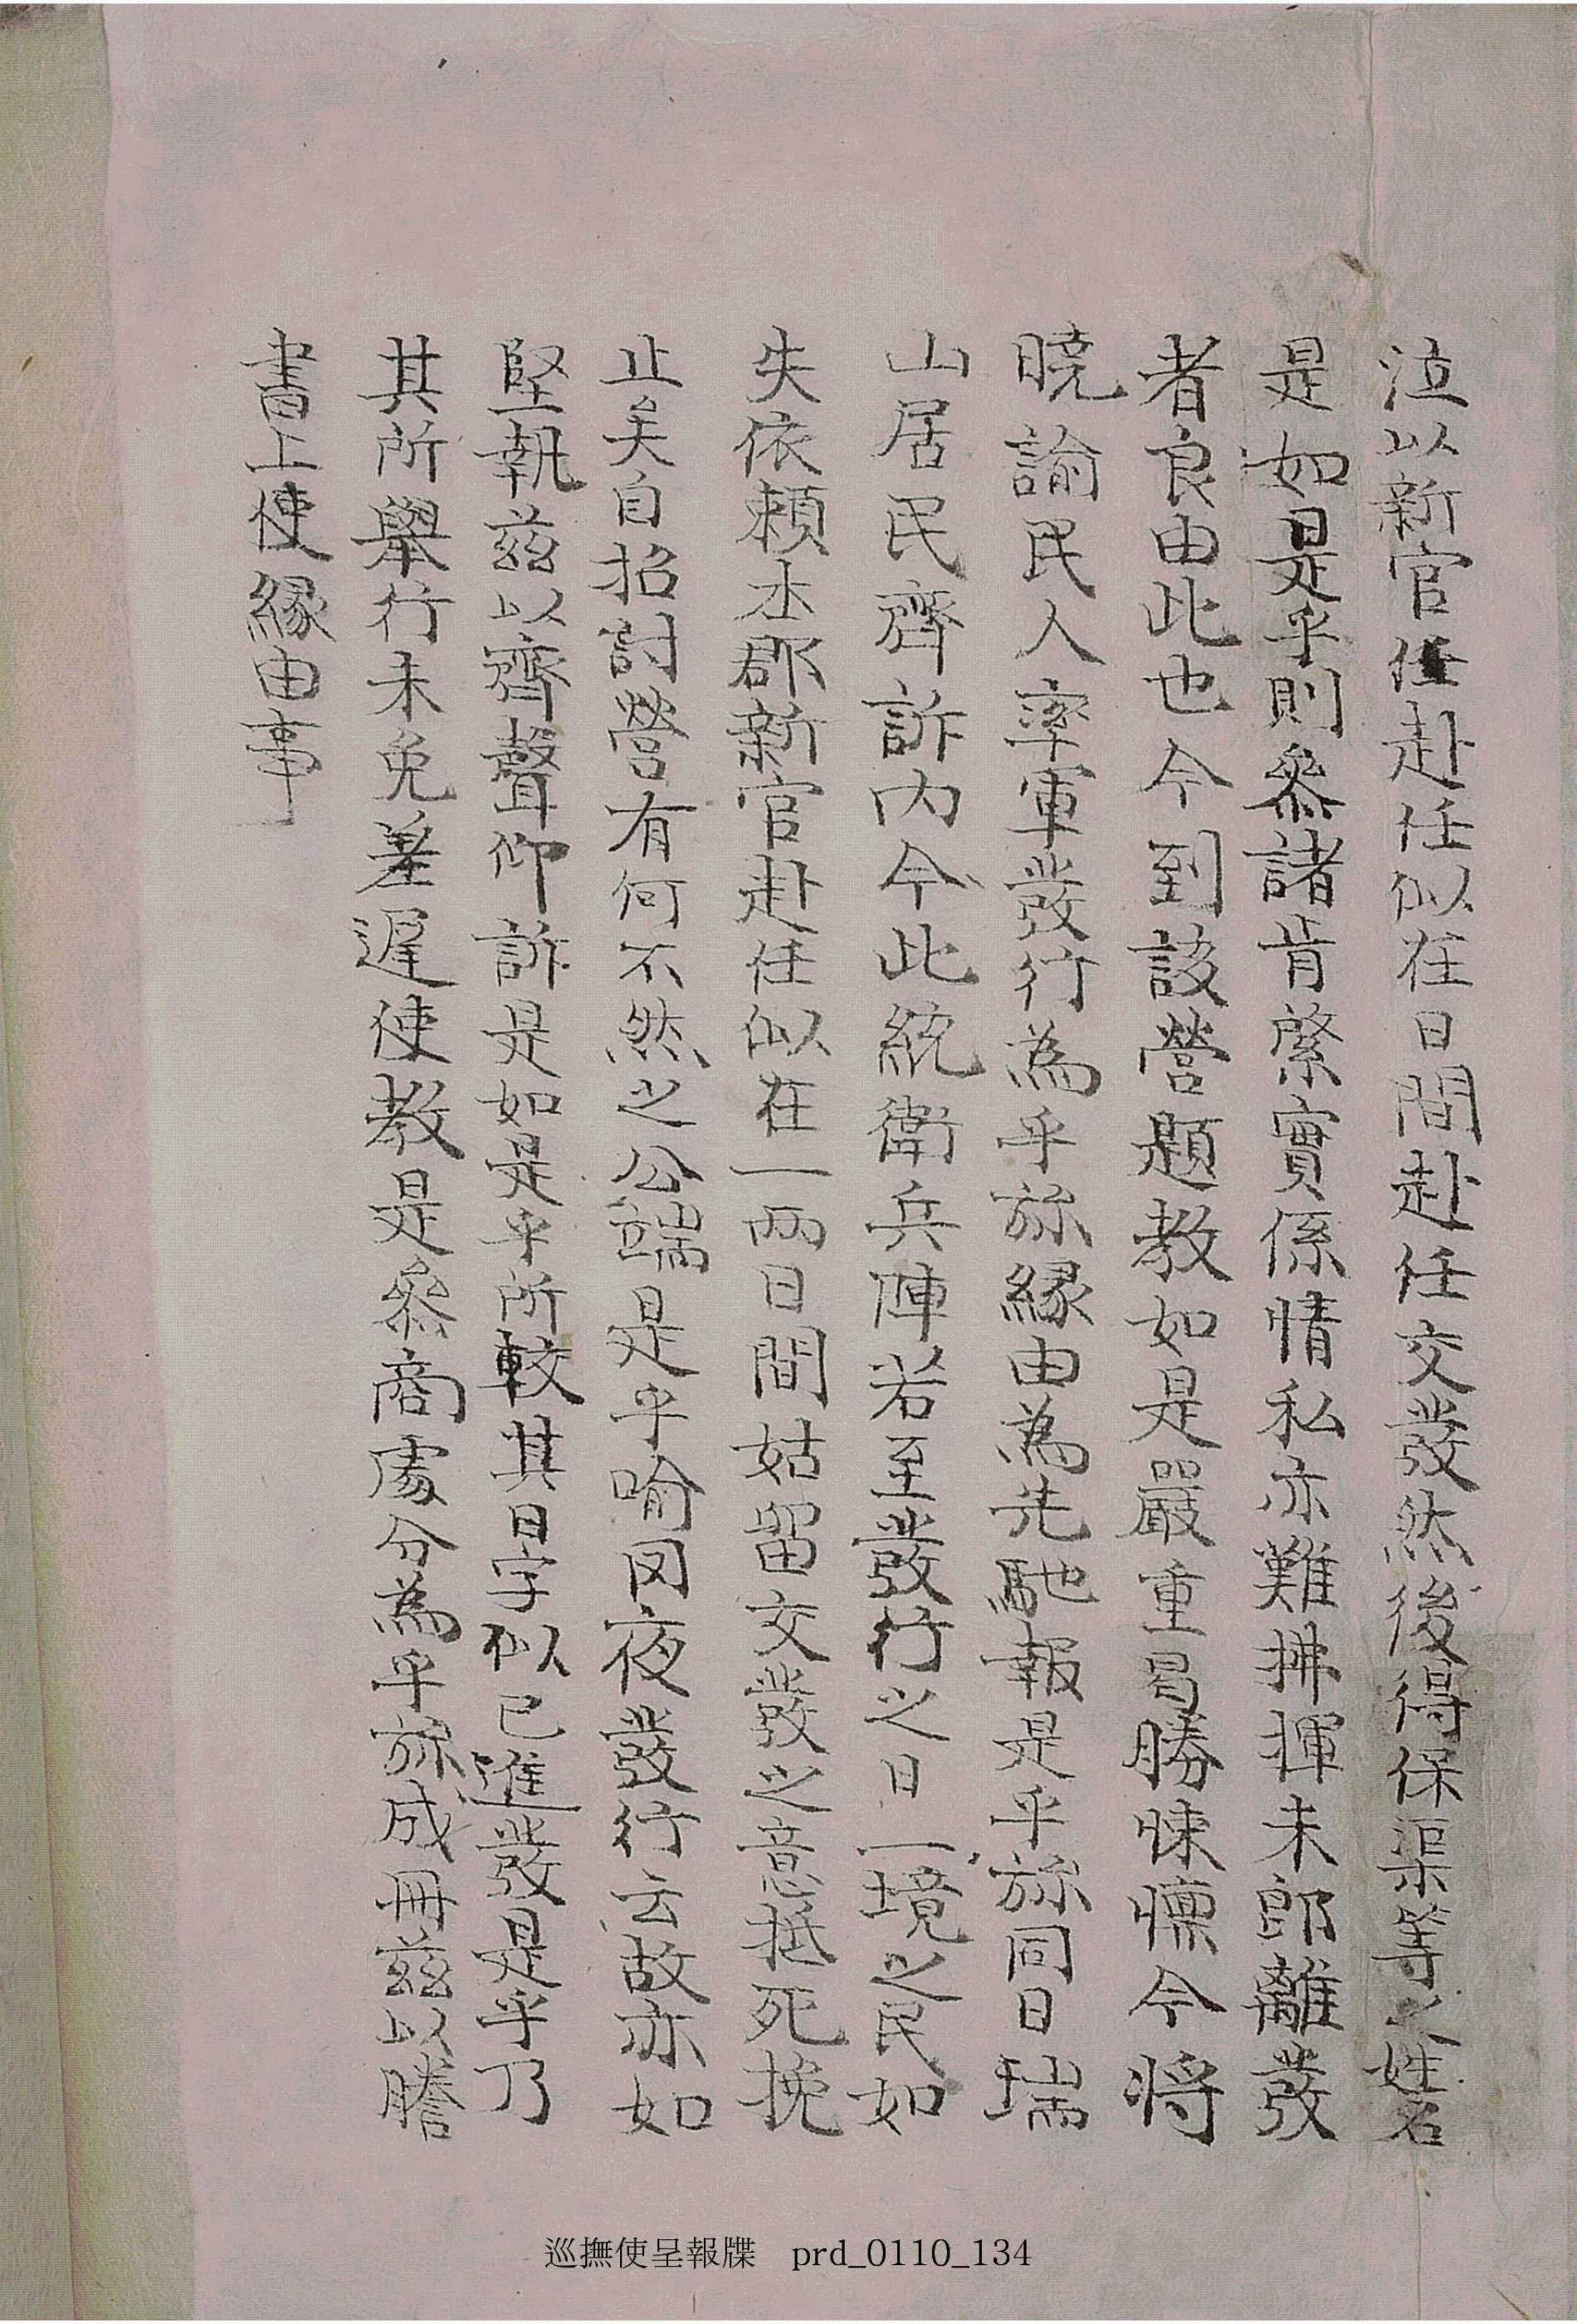 泣以新官任赴任似在日間赴任交發然後得保渠等之姓名
是如是乎則參諸肯綮實係情私亦難拂揮未郎離發
者良由此也今到該營題教如是嚴重曷勝悚懍今將
曉諭民人率軍發行為乎旀緣由為先馳報是乎旀同日瑞
山居民齊訴內今此統衛兵陣若至發行之日一境之民如
失依賴本郡新官赴任似在一兩日間姑留交發之意抵死挽
止矣自招討營有何不然之公端是乎喻罔夜發行云故亦如
堅執玆以齊聲仰訴是如是乎所較其日字似已進發是乎乃
其所舉行未免差遲使教是參商處分為乎旀成冊玆以謄
書上使緣由事
巡撫使呈報牒　prd_0110_134